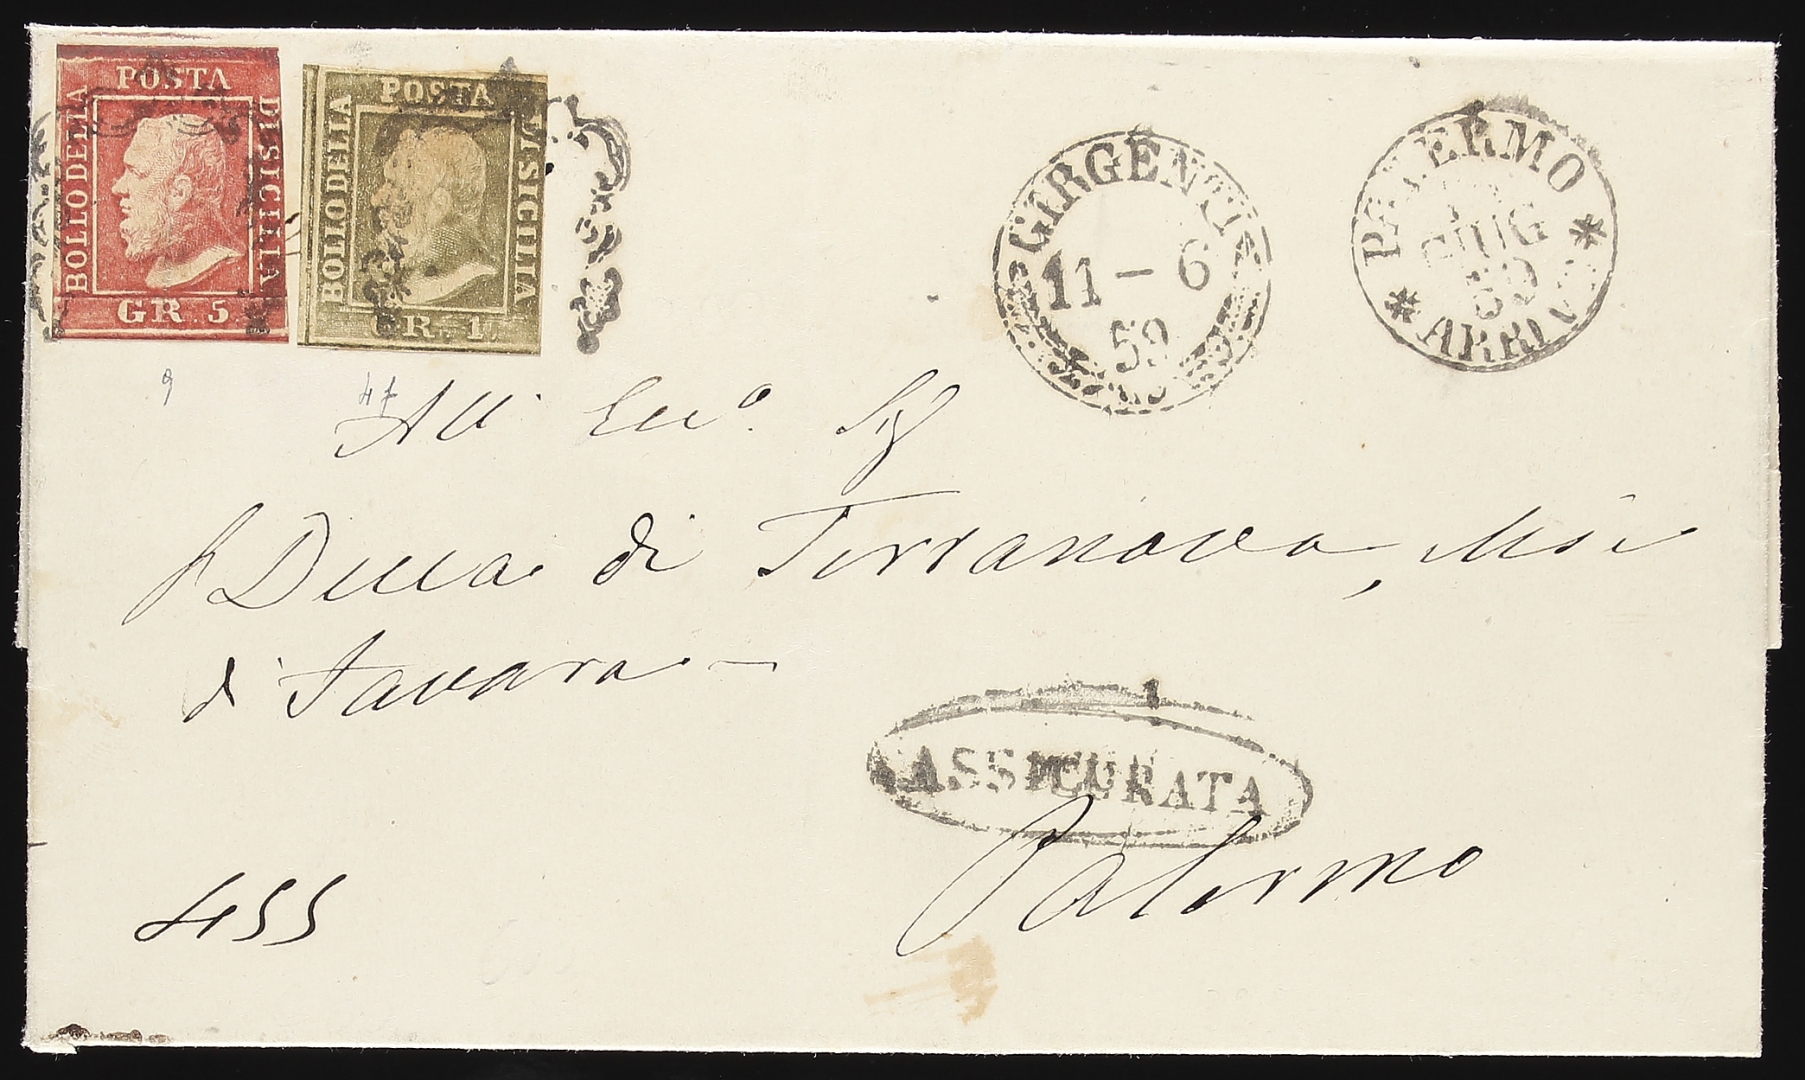 POSTA
BOLLO DELLA
DI SICILIA
GR. 5
POSTA
BOLLO DELLA
DI SICILIA
GR. 1.
GIRGENTI
11 - 6
59
PALERMO
GIU G
59
ARRIVO
9
47
All' Ecc.o Sig
Duca di Terranova,
di Favara
1
ASSICURATA
Palermo
455